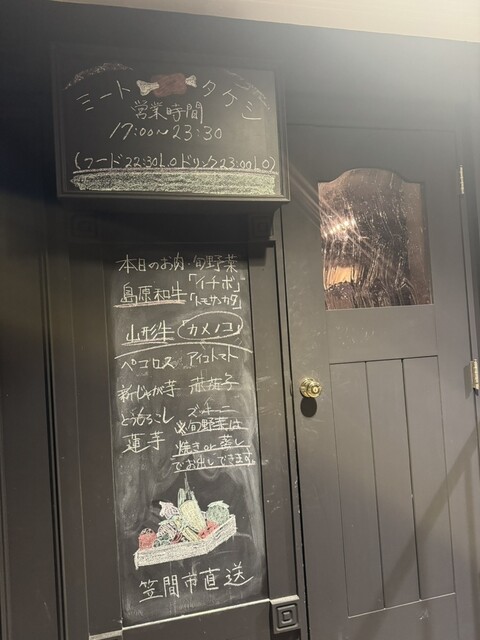 ミート タケシ
営業時間
17:00~23:30
(フード22:30L.O ドリンク23:00L.O)
本日のお肉・旬野菜
島原和牛 「イチボ」
「トモサンカク」
山形牛 (カメノコ)
ペコロス アイコトマト
新じゃが芋 茄子
とうもろこし ズッキーニ
蓮芋
※旬野菜は
焼き or 蒸し
でお出しできます。
笠間市直送